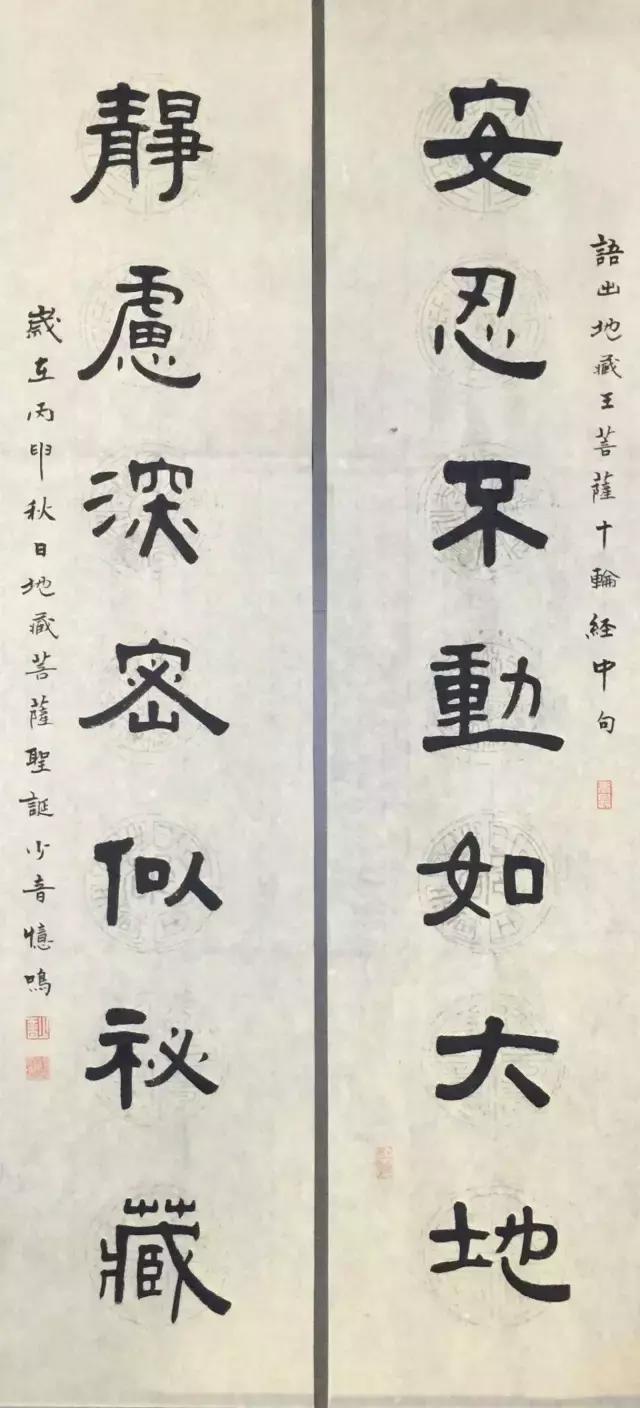 語出地藏王菩薩十輪経中句
安忍不動如大地
靜慮深密似祕藏
歲在丙申秋日地藏菩薩聖誕少音憶鳴